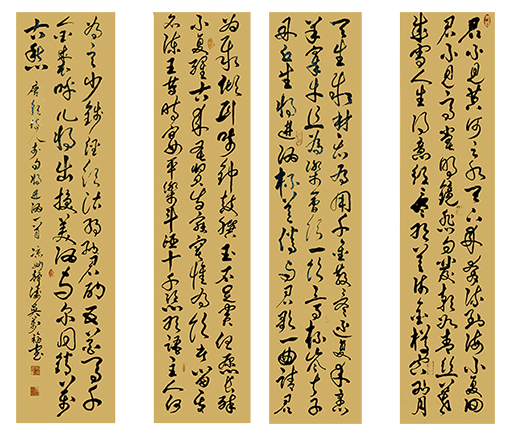 君不見黄河之水天上来奔流到海不復回
君不見高堂明鏡悲白髮朝如青絲暮
成雪人生得意須盡歡莫使金樽空對月
天生我材必有用千金散盡還復来烹
羊宰牛且為樂會須一飲三百杯岑夫子
丹丘生將進酒杯莫停與君歌一曲請君
為我傾耳聽鐘鼓饌玉不足貴但願長醉
不復醒古来聖賢皆寂寞惟有飲者留其
名陳王昔時宴平樂斗酒十千恣歡謔主人何
為言少錢徑須沽取對君酌五花馬千
金裘呼兒將出換美酒與爾同銷萬
古愁
將進酒一首